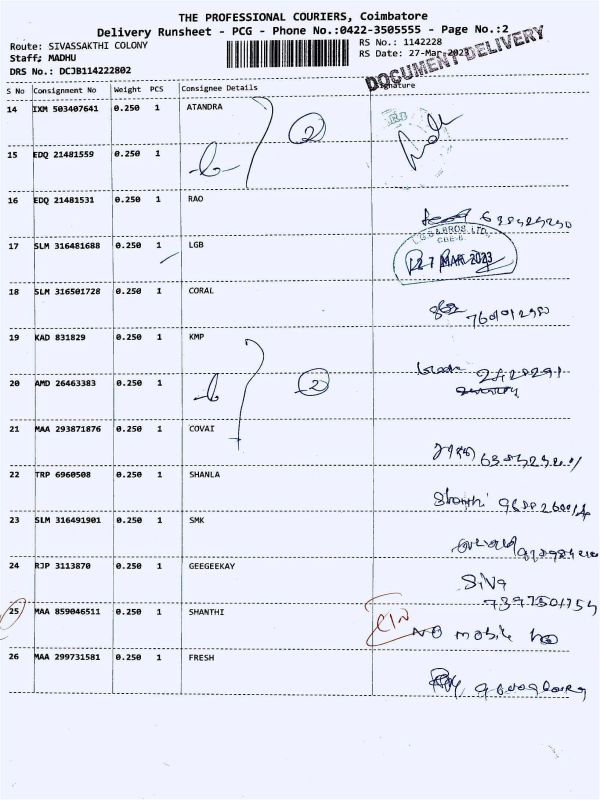 THE PROFESSIONAL COURIERS, Coimbatore
Delivery Runsheet - PCG - Phone No.:0422-3505555 - Page No.:2
Route: SIVASSAKTHI COLONY
RS No.: 1142228
Staff; MADHU
RS Date: 27-Mar-2023
DRS No.: DCJB114222802
DOCUMENT DELIVERY
S No Consignment No Weight PCS Consignee Details Signature
14 IXM 503407641 0.250 1 ATANDRA
2
15 EDQ 21481559 0.250 1
16 EDQ 21481531 0.250 1 RAO
17 SLM 316481688 0.250 1 LGB
L.G.B & BROS. LTD,
CBE-6.
27 MAR 2023
18 SLM 316501728 0.250 1 CORAL
19 KAD 831829 0.250 1 KMP
20 AMD 26463383 0.250 1
2
21 MAA 293871876 0.250 1 COVAI
22 TRP 6960508 0.250 1 SHANLA
23 SLM 316491901 0.250 1 SMK
24 RJP 3113870 0.250 1 GEEGEEKAY
SiVa
7397501754
25 MAA 859046511 0.250 1 SHANTHI
NO mobile no
26 MAA 299731581 0.250 1 FRESH